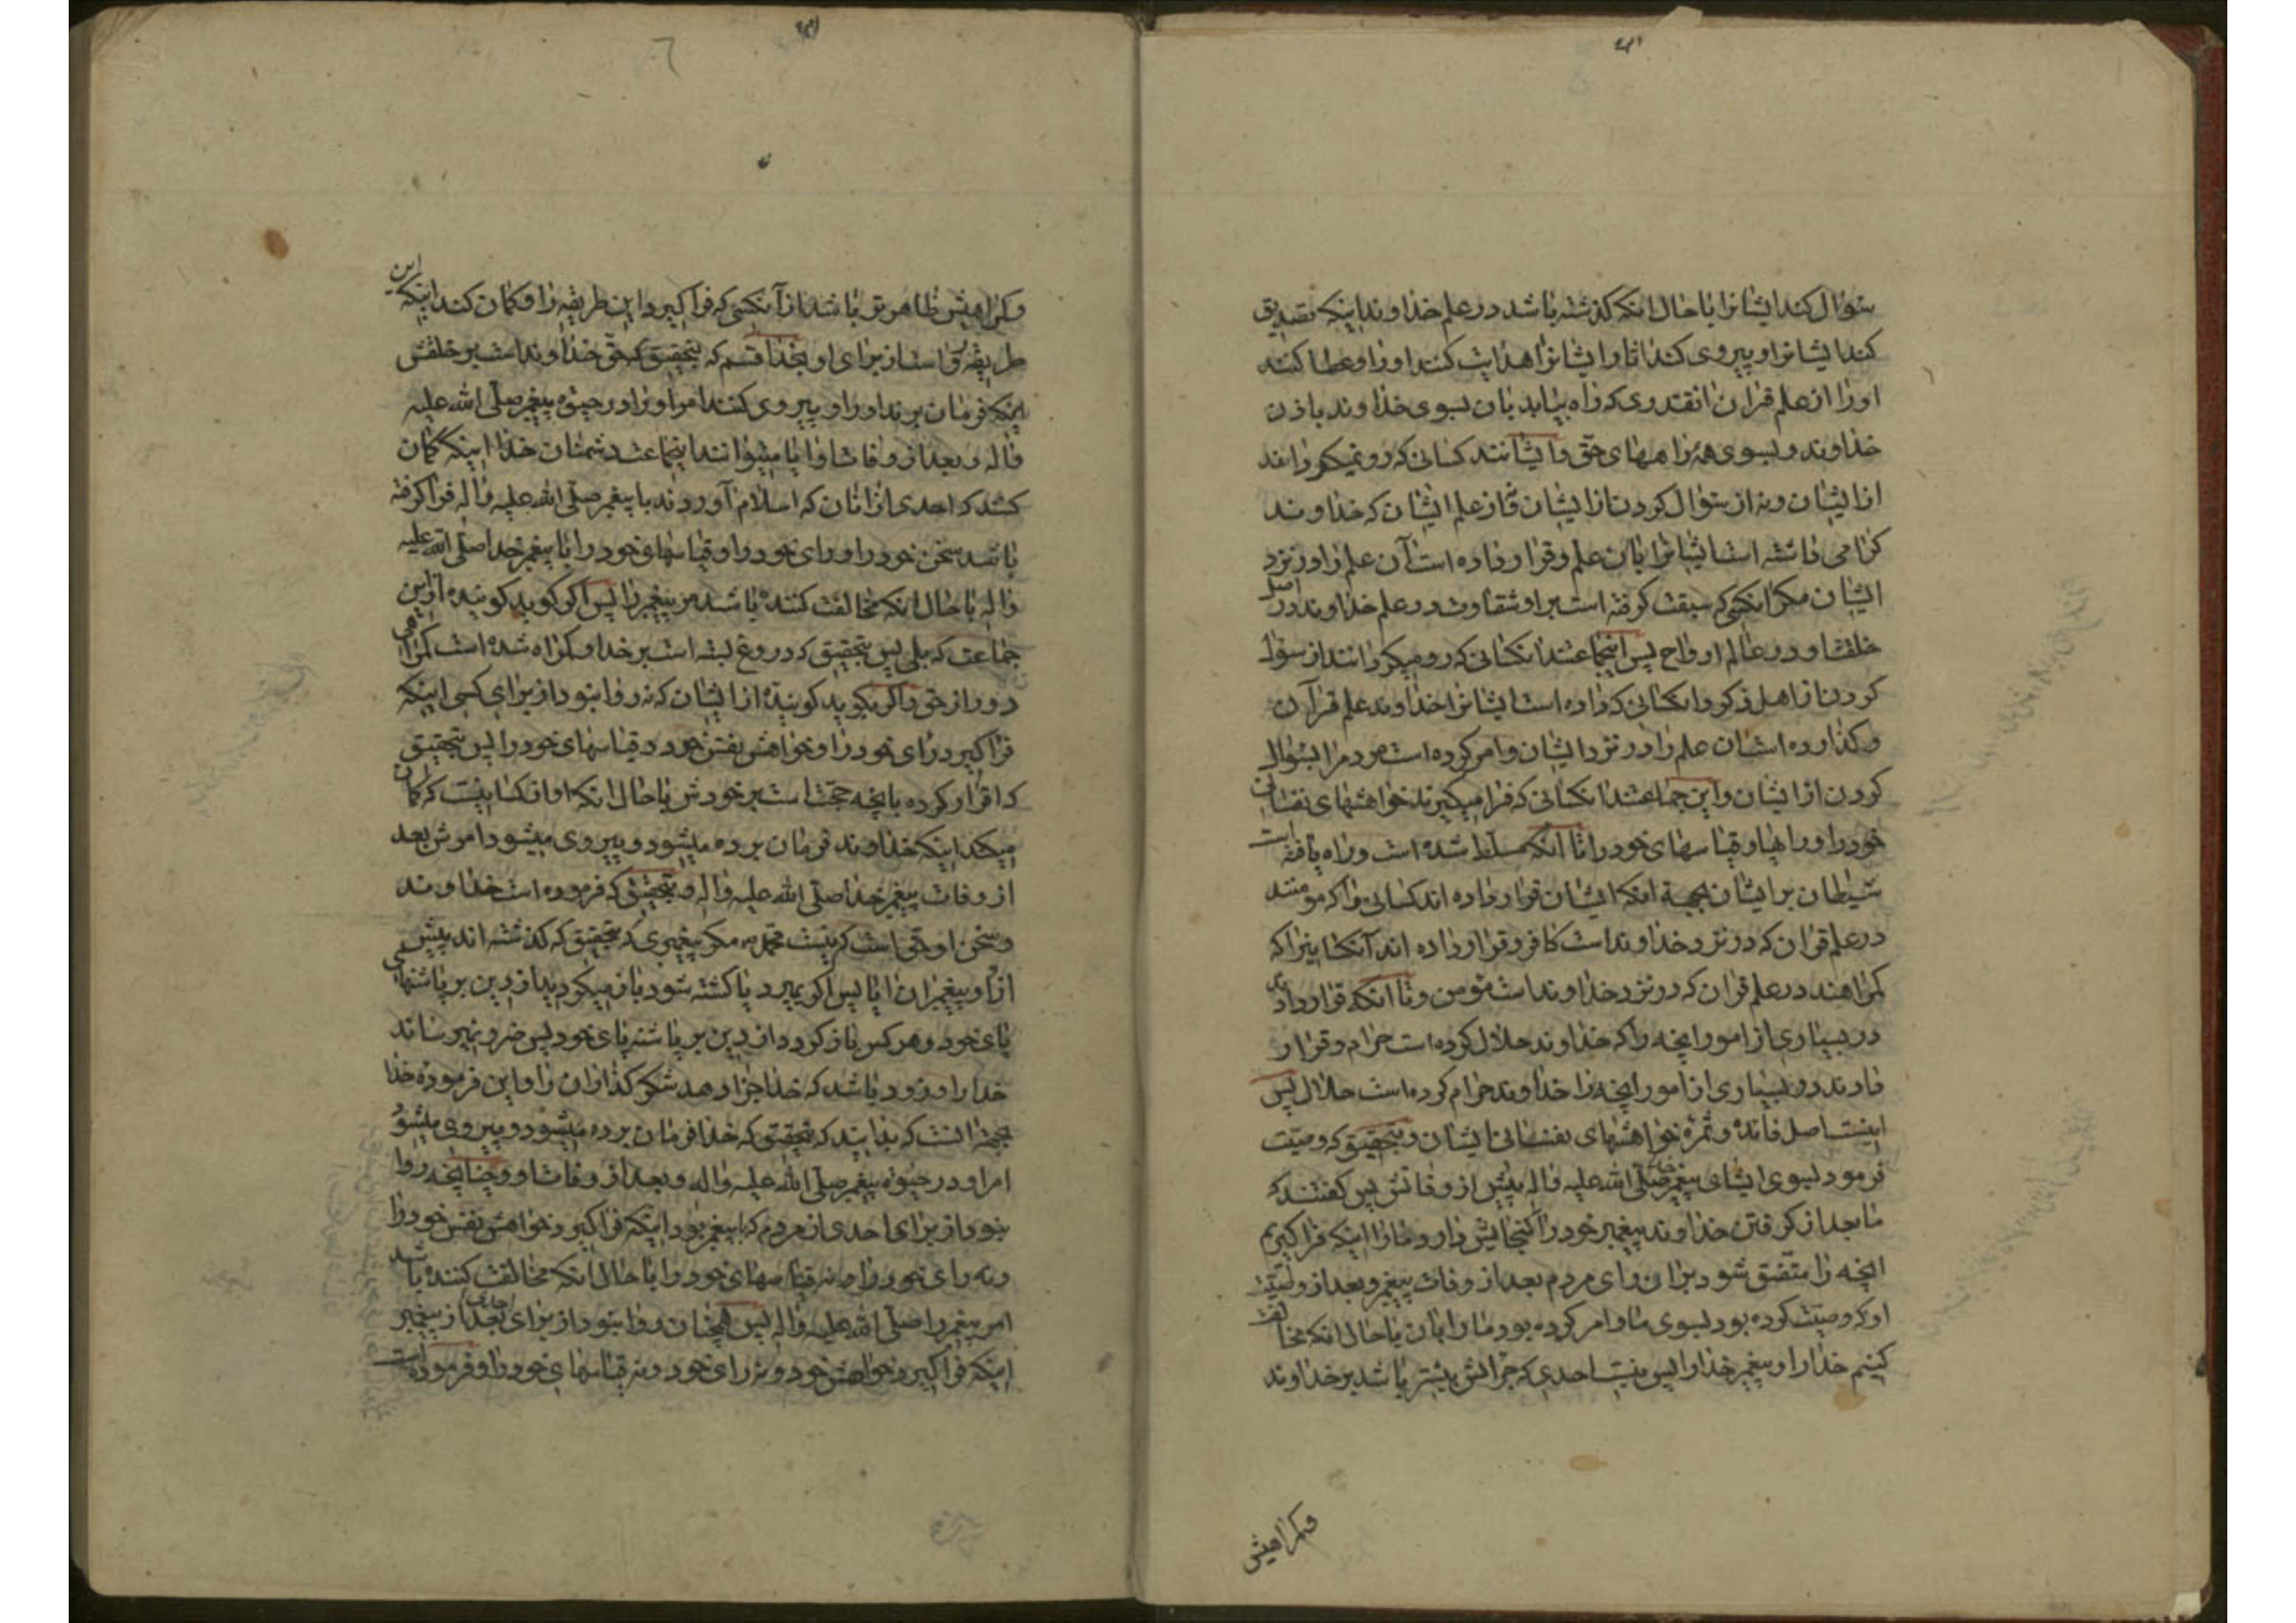 سئوال کند ایشانرا با حال انکه کذشته باشد در علم خداوند اینکه تصدیق
کند ایشانرا و پیروی کند اثار ایشانرا هدایت کنند اورا و عطا کنند
اورا از علم قران انقدری که راه بیابد بان بسوی خداوند باذن
خداوند و بسوی همه راههای حق و ایشانند کسانی که رو نمیکرداند
از ایشان و نه از سئوال کردن از ایشان و از علم ایشان که خداوند
کرامی داشته است ایشانرا بان علم و قرار داده است آن علم را در نزد
ایشان مکر انکسی که سبقت کرفته است بر او شقاوت در علم خداوند در اصل
خلقت او در عالم ارواح پس اینجماعتند انکسانی که رو میکردانند از سؤال
کردن از اهل ذکر و انکسانی که داده است ایشانرا خداوند علم قرآن
و کذارده است ان علم را در نزد ایشان و امر کرده است مردم را بسئوال
کردن از ایشان و این جماعتند انکسانی که فرا میکیرند خواهشهای نفسان
خود را و رایها و قیاسهای خود را تا انکه مسلط شده است و راه یافته است
شیطان بر ایشان بجهة انکه ایشان قرار داده اند کسانی را که مومنند
در علم قران که در نزد خداوند است کافر و قرار داده اند آنکسانیرا که
کمراهند در علم قران که در نزد خداوند است مؤمن و تا انکه قرار دادند
در بسیاری از امور انچه را که خداوند حلال کرده است حرام و قرار
دادند در بسیاری از امور انچه را خداوند حرام کرده است حلال پس
اینست اصل فائده و ثمره خواهشهای نفسانی ایشان و بتحقیق که وصیت
فرمود بسوی ایشان پیغمبر خدا صلی الله علیه و اله پیش از وفاتش پس کفتند که
ما بعد از کرفتن خداوند پیغمبر خود را کنجایش دارد ما را اینکه فرا کیریم
انچه را متفق شود بران رای مردم بعد از وفات پیغمبر و بعد از وصیت
او که وصیت کرده بود بسوی ما و امر کرده بود ما را بان با حال انکه مخالفت
کنیم خدا را و پیغمبر خدا را پس نیست احدی که جراتش بیشتر باشد بر خداوند
و کمراهیش
و کمراهیش ظاهرتر باشد از آنکسی که فرا کیرد این طریقه را و کمان کند اینکه این
طریقه رواست از برای او بخدا قسم که بتحقیق که حق خداوند است بر خلقش
اینکه فرمان برند اورا و پیروی کنند امر اورا در حیوة پیغمبر صلی الله علیه
و اله و بعد از وفات او ایا میتوانند اینجماعت دشمنان خدا اینکه کمان
کنند که احدی از انان که اسلام آوردند با پیغمبر صلی الله علیه و اله فرا کرفته
باشد سخن خود را و رای خود را و قیاسهای خود را با پیغمبر خدا صلی الله علیه
و اله با حال انکه مخالفت کننده باشد مر پیغمبر را پس اکر کوید کوینده از این
جماعت که بلی پس بتحقیق که دروغ بسته است بر خدا و کمراه شده است کمراهی
دور از حق و اکر بکوید کوینده از ایشان که نه روا نبود از برای کسی اینکه
فرا کیرد رای خود را و خواهش نفس خود و قیاسهای خود را پس بتحقیق
که اقرار کرده بانچه حجت است بر خودش با حال انکه او از کسانیست که کمان
میکند اینکه خداوند فرمان برده میشود و پیروی میشود امرش بعد
از وفات پیغمبر خدا صلی الله علیه و اله و بتحقیق که فرموده است خداوند
و سخن او حق است که نیست محمد مکر پیغمبری که بتحقیق که کذشته اند پیش
از او پیغمبران ایا پس اکر بمیرد یا کشته شود باز میکردید از دین بر پاشنهای
پای خود و هر کس باز کردد از دین بر پاشنه پای خود پس ضرر نمیرساند
خدا را و زود باشد که خدا جزا دهد شکر کذاران را و این فرموده خدا
بجهة انست که بدانید که بتحقیق که خدا فرمان برده میشود و پیروی میشود
امر او در حیوة پیغمبر صلی الله علیه و اله و بعد از وفات او و چنانچه روا
نبود از برای احدی از مردم که با پیغمبر بود اینکه فرا کیرد خواهش نفس خود را
و نه رای خود را و نه قیاسهای خود را با حال انکه مخالفت کننده باشد
امر پیغمبر را صلی الله علیه و اله پس همچنان روا نبود از برای احدی بعد از پیغمبر
اینکه فرا کیرد خواهش خود و نه رای خود و نه قیاسهای خود را و فرموده است